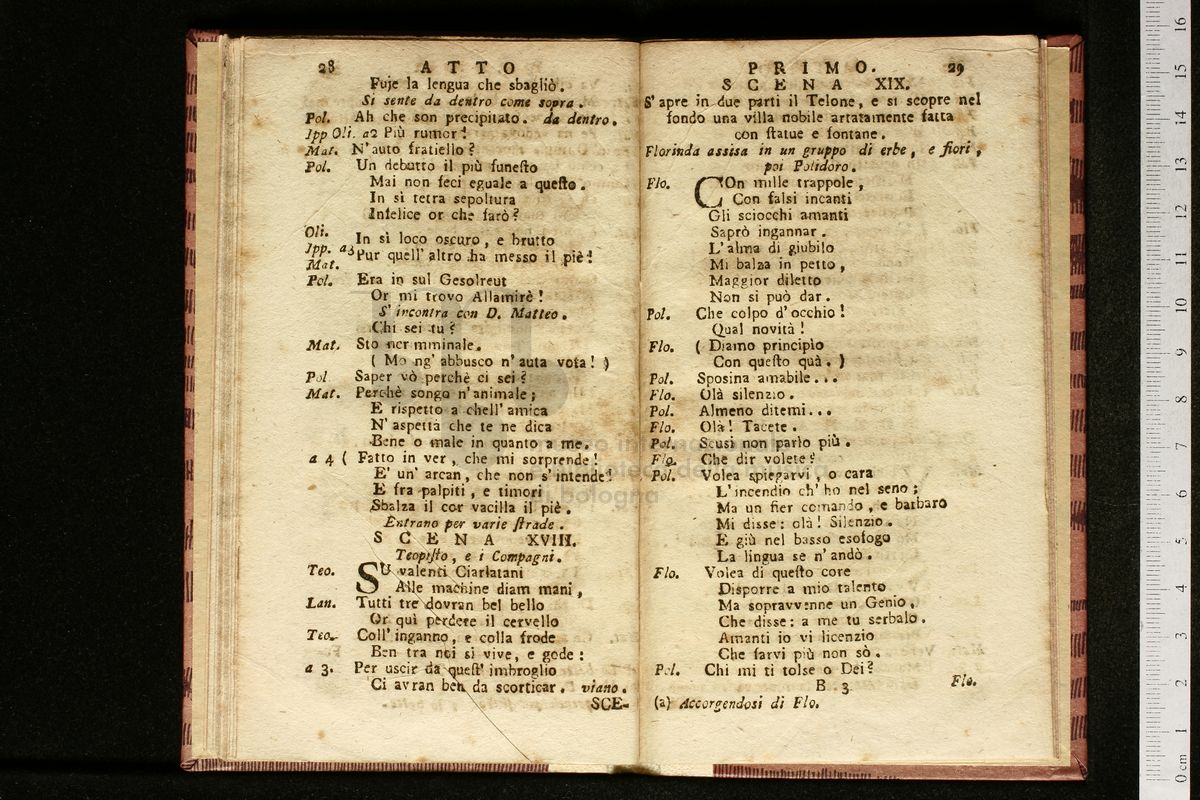 28 ATTO
Fuje la lengua che sbagliò.
Si sente da dentro come sopra.
Pol. Ah che son precipitato. da dentro.
Ipp Oli. a2 Più rumor!
Mat. N'auto fratiello?
Pol. Un debutto il più funeſto
Mai non feci eguale a queſto.
In sì tetra sepoltura
Infelice or che farò?
Oli.
Ipp. a3
Mat.
In sì loco oscuro, e brutto
Pur quell'altro ha messo il piè!
Pol. Era in sul Gesolreut
Or mi trovo Allamirè!
S'incontra con D. Matteo.
Chi sei tu?
Mat. Sto nermminale.
( Mo ng'abbusco n'auta vota! )
Pol Saper vò perchè ci sei?
Mat. Perchè songo n'animale;
E rispetto a chell'amica
N'aspetta che te ne dica
Bene o male in quanto a me.
a 4 ( Fatto in ver, che mi sorprende!
E' un'arcan, che non s'intende!
E fra palpiti, e timori
Sbalza il cor vacilla il piè.
Entrano per varie ſtrade.
SCENA XVIII.
Teopiſto, e i Compagni.
Teo. SU valenti Ciarlatani
Alle machine diam mani,
Lan. Tutti tre dovran bel bello
Or quì perdere il cervello
Teo. Coll'inganno, e colla frode
Ben tra noi si vive, e gode:
a 3. Per uscir da queſt'imbroglio
Ci avran ben da scorticar. viano.
SCE-
PRIMO. 29
SCENA XIX.
S'apre in due parti il Telone, e si scopre nel
fondo una villa nobile artatamente fatta
con ſtatue e fontane.
Florinda assisa in un gruppo di erbe, e fiori,
poi Polidoro.
Flo. COn mille trappole,
Con falsi incanti
Gli sciocchi amanti
Saprò ingannar.
L'alma di giubilo
Mi balza in petto,
Maggior diletto
Non si può dar.
Pol. Che colpo d'occhio!
Qual novità!
Flo. ( Diamo principio
Con queſto quà. )
Pol. Sposina amabile...
Flo. Olà silenzio.
Pol. Almeno ditemi...
Flo. Olà! Tacete.
Pol. Scusi non parlo più.
Flo. Che dir volete?
Pol. Volea spiegarvi, o cara
L'incendio ch'ho nel seno;
Ma un fier comando, e barbaro
Mi disse: olà! Silenzio.
E giù nel basso esofogo
La lingua se n'andò.
Flo. Volea di queſto core
Disporre a mio talento
Ma sopravvenne un Genio,
Che disse: a me tu serbalo.
Amanti io vi licenzio
Che farvi più non sò.
Pol. Chi mi ti tolse o Dei?
B 3 Flo.
(a) Accorgendosi di Flo.
16
15
14
13
12
11
10
9
8
7
6
5
4
3
2
1
0 cm